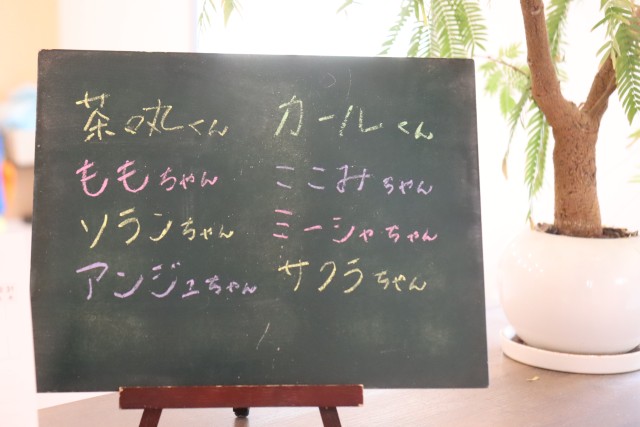 茶々丸くん カールくん
ももちゃん ここみちゃん
ソランちゃん ミーシャちゃん
アンジュちゃん サクラちゃん